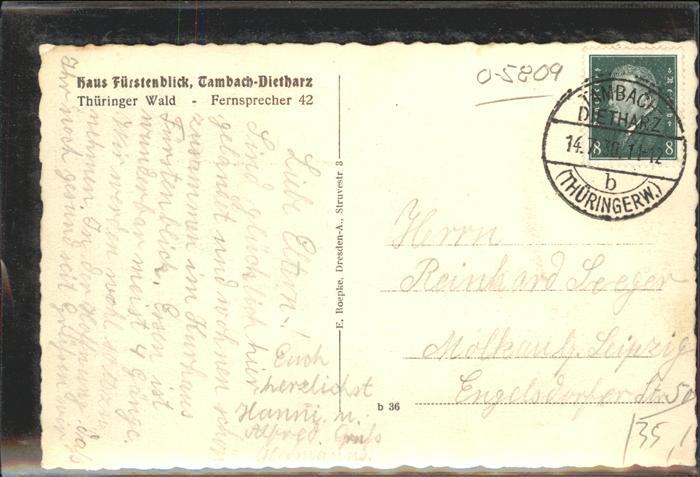 Haus Fürstenblick, Tambach-Dietharz
Thüringer Wald - Fernsprecher 42
Liebe Eltern!
Sind glücklich hier
gelandet und wohnen schön
zusammen im Kurhaus
Fürstenblick. Essen ist
wunderbar meist 4 Gänge.
Wir werden wohl
nehmen. In der Hoffnung, daß
Ihr noch gesund seid grüßen
Euch
herzlichst
Hanni u.
Alfred. Gruß
E. Roepke, Dresden-A., Struvestr 3
b 36
0-5809
8 8
TAMBACH-
DIETHARZ
14. 30. 11-12
b
(THÜRINGERW.)
Herrn
Reinhard Seeger
Molkau b/Leipzig
Engelsdorfer Str. 50
135,